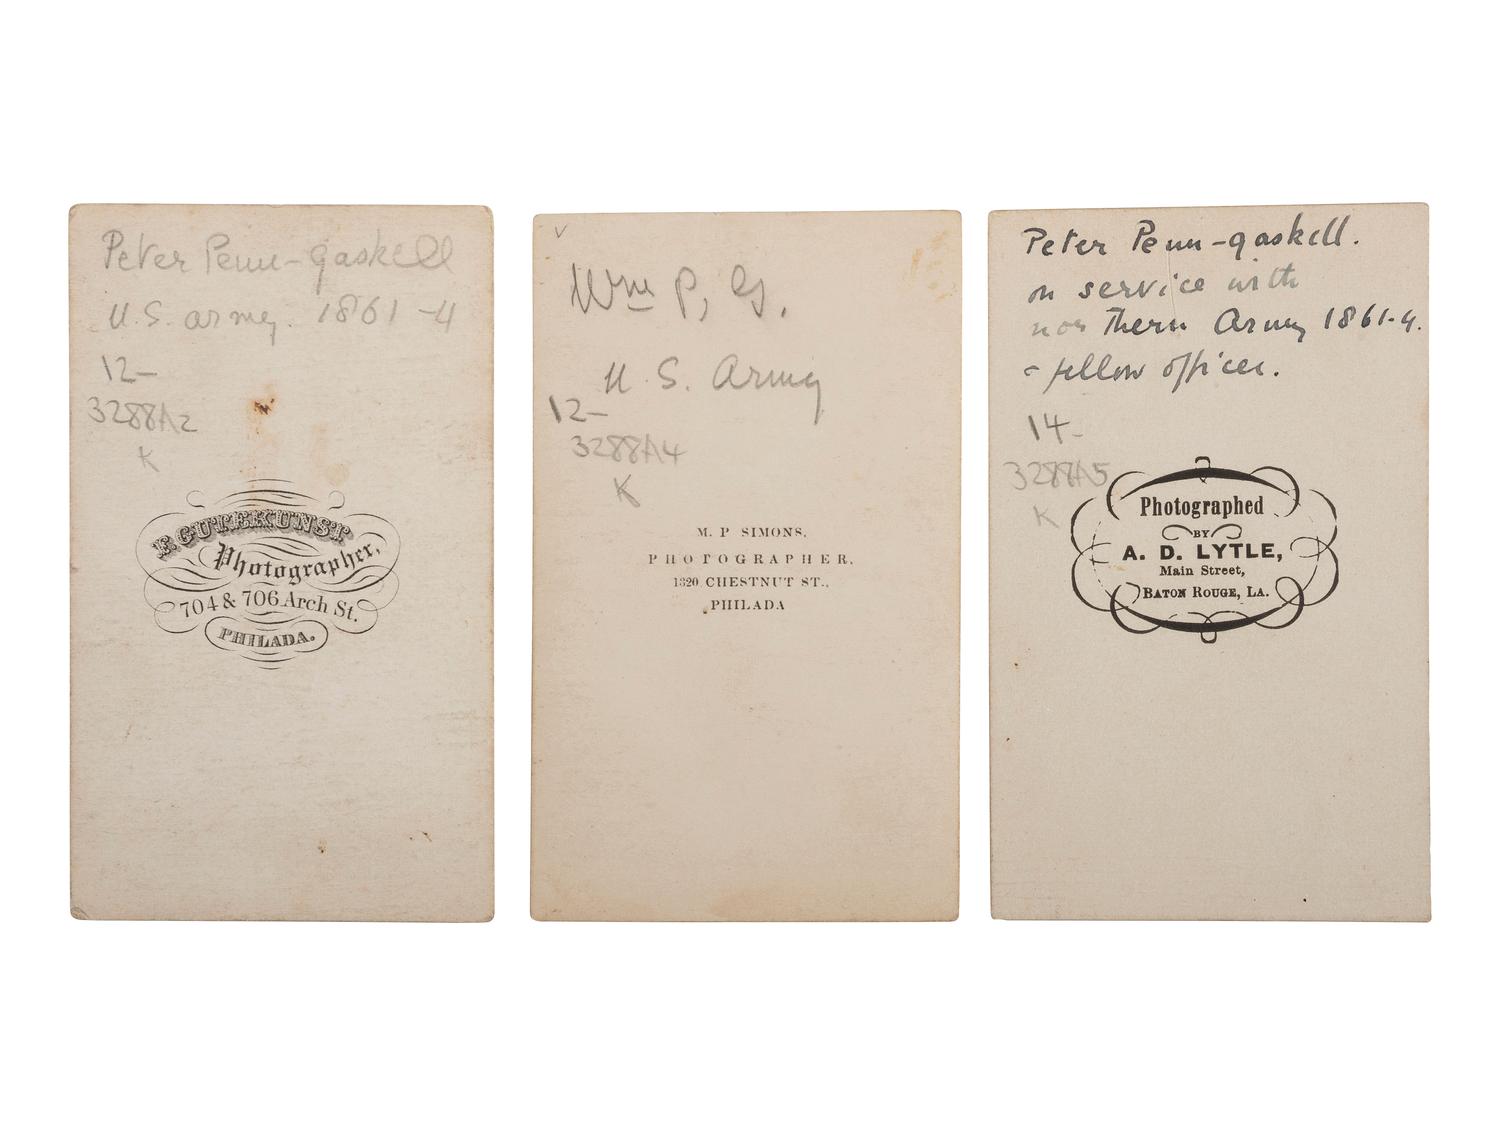 Peter Penn-gaskell
U.S. army. 1861-4
12-
3288A2
K
F. GUTEKUNST
Photographer,
704 & 706 Arch St.
PHILADA.
Wm P, G.
U.S. Army
12-
3288A4
K
M. P SIMONS,
PHOTOGRAPHER,
1320 CHESTNUT ST.,
PHILADA
Peter Penn-gaskell.
on service with
nor thern Army 1861-4.
- fellow officer.
14-
3288A5
K
Photographed
BY
A. D. LYTLE,
Main Street,
BATON ROUGE, LA.